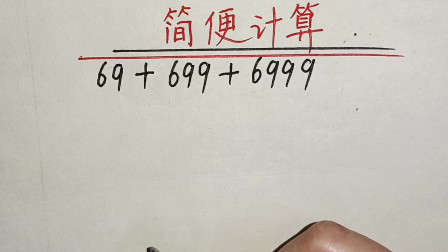 简便计算
69 + 699 + 6999